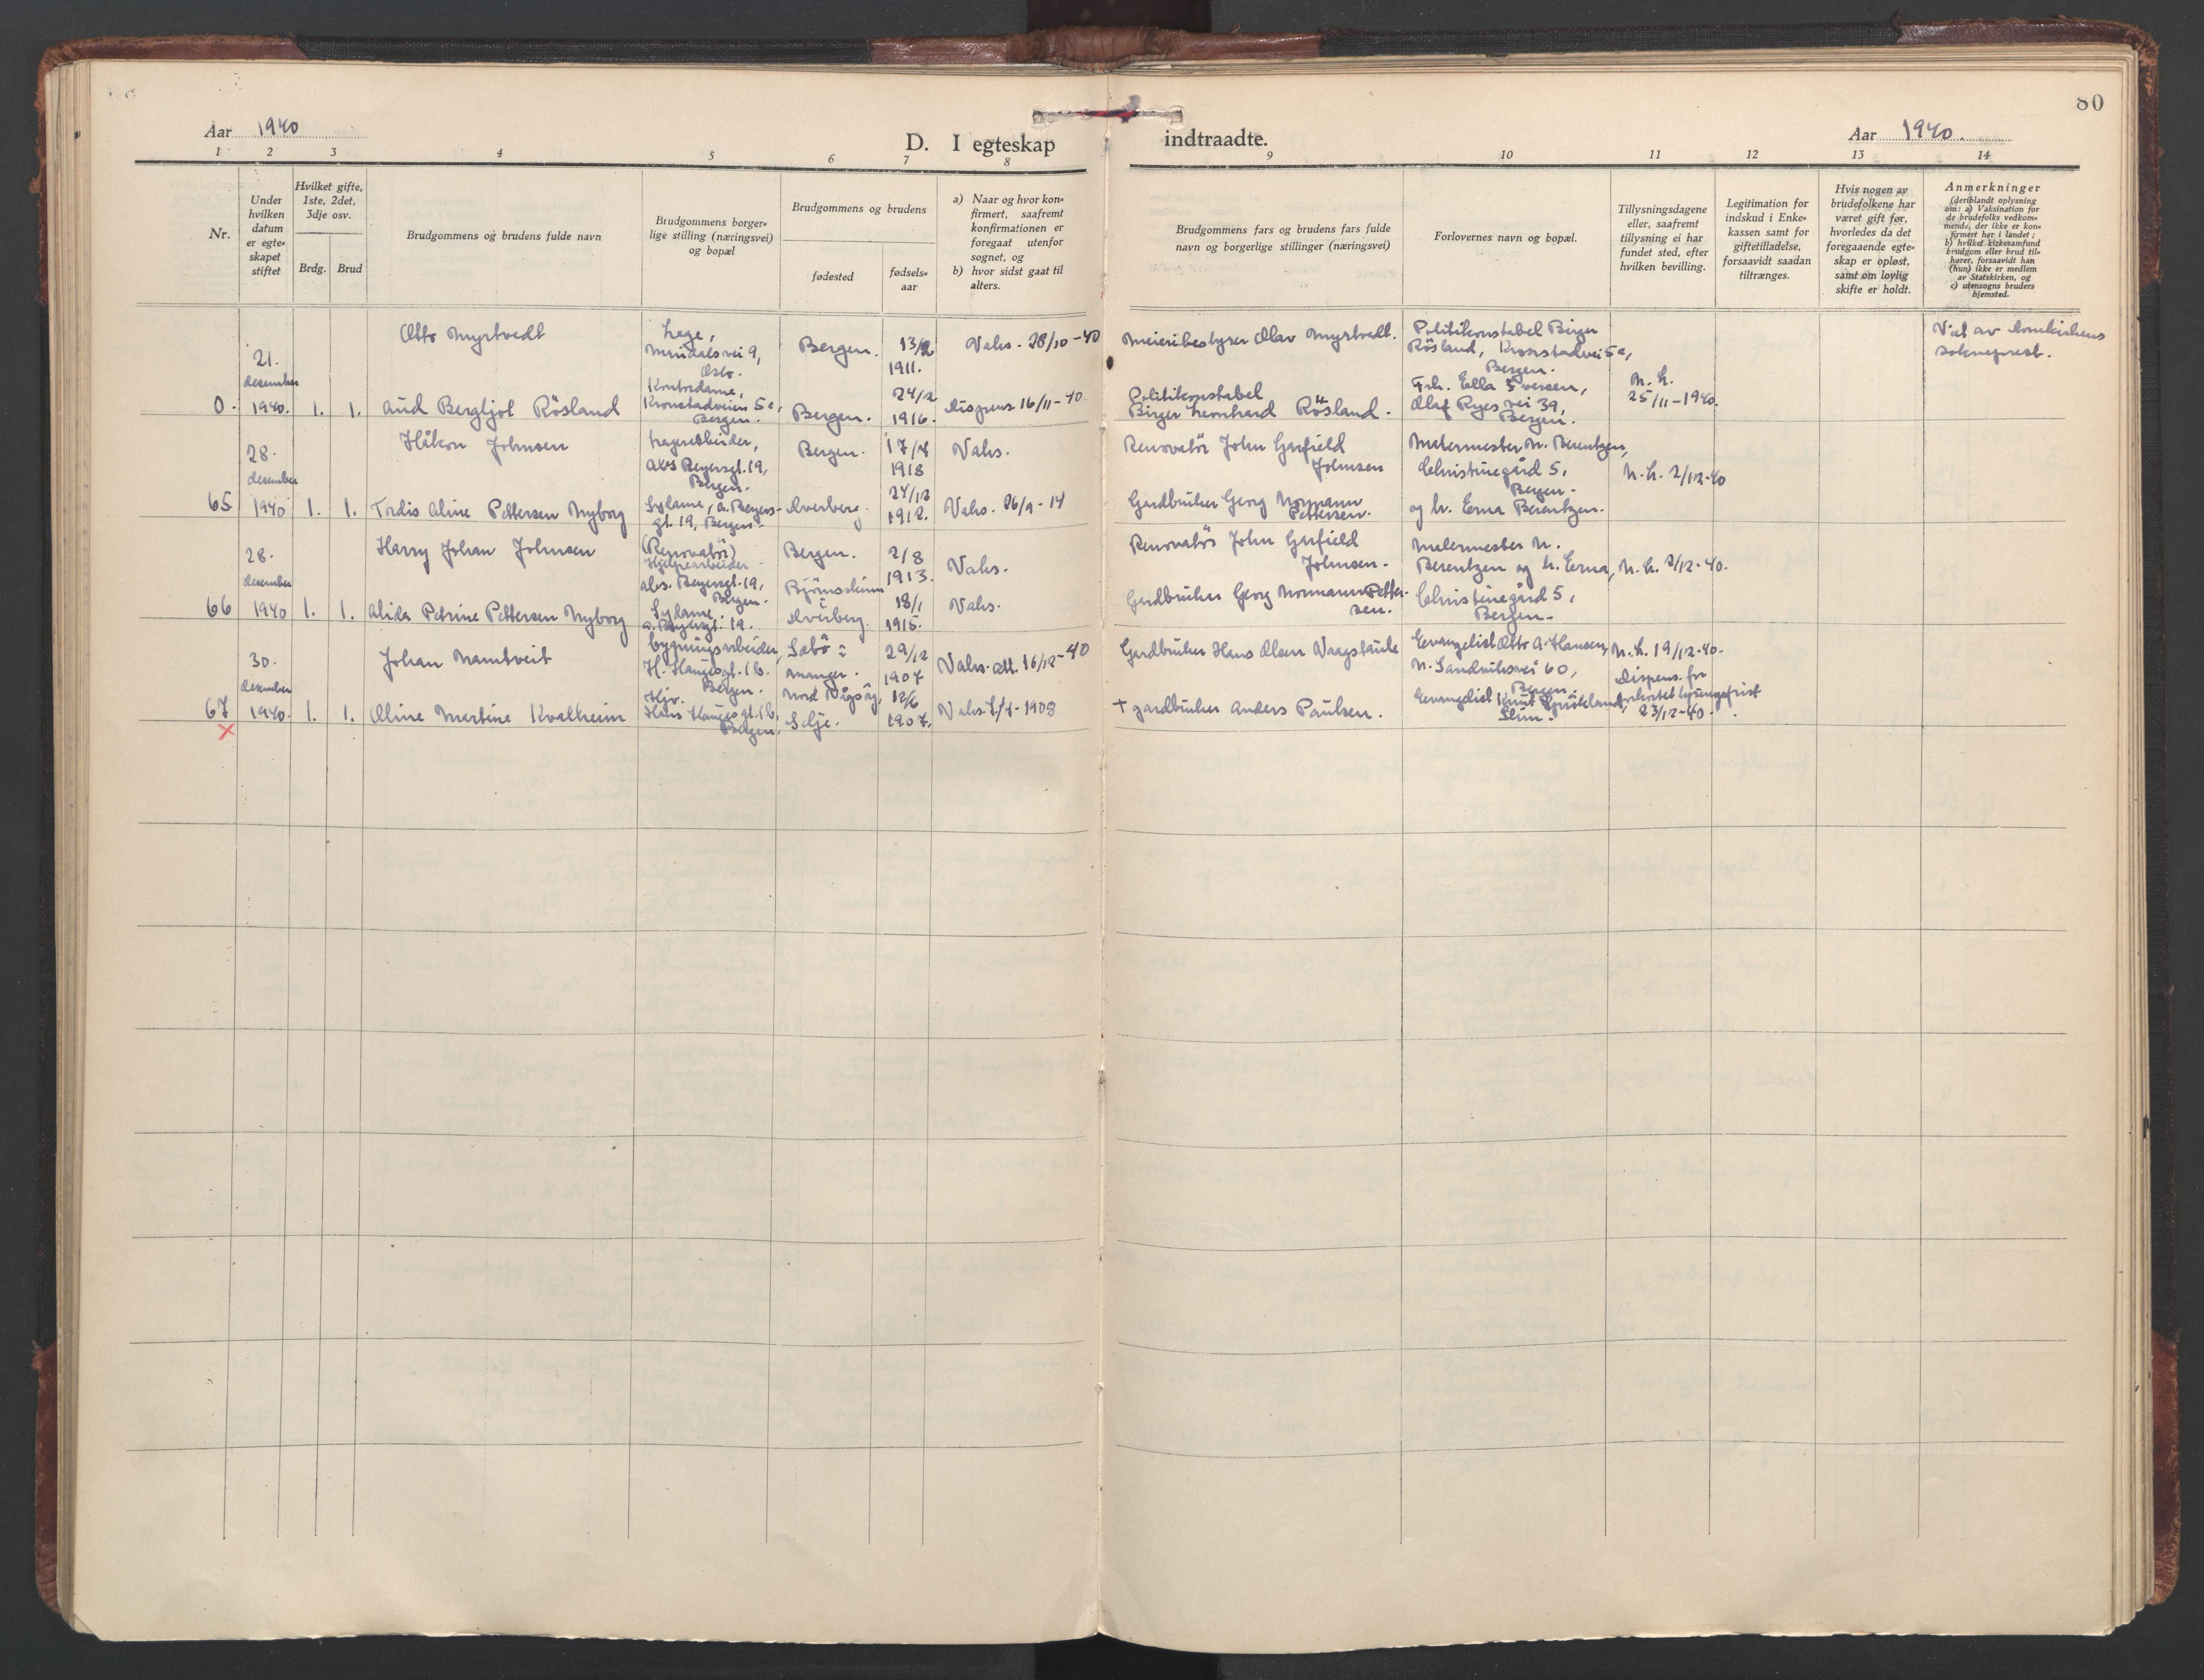 80
Aar 1940
D. I egteskap
indtraadte.
Aar 1940.
1 2 3 4 5 6 7 8 9 10 11 12 13 14
Nr.
Under
hvilken
datum
er egte-
skapet
stiftet
Hvilket gifte,
1ste, 2det,
3dje osv.
Brdg. Brud
Brudgommens og brudens fulde navn
Brudgommens borger-
lige stilling (næringsvei)
og bopæl
Brudgommens og brudens
fødested
fødsels-
aar
a) Naar og hvor kon-
firmert, saafremt
konfirmationen er
foregaat utenfor
sognet, og
b) hvor sidst gaat til
alters.
Brudgommens fars og brudens fars fulde
navn og borgerlige stillinger (næringsvei)
Forlovernes navn og bopæl.
Tillysningsdagene
eller, saafremt
tillysning ei har
fundet sted, efter
hvilken bevilling.
Legitimation for
indskud i Enke-
kassen samt for
giftetilladelse,
forsaavidt saadan
tiltrænges.
Hvis nogen av
brudefolkene har
været gift før,
hvorledes da det
foregaaende egte-
skap er opløst,
samt om lovlig
skifte er holdt.
Anmerkninger
(deriblandt oplysning
om: a) Vaksination for
de brudefolks vedkom-
mende, der ikke er kon-
firmert her i landet;
b) hvilket kirkesamfund
brudgom eller brud til-
hører, forsaavidt han
(hun) ikke er medlem
av Statskirken, og
c) utensogns bruders
hjemsted.
0.
21.
desember
1940.
1. 1.
Otto Myrtvedt
Aud Bergljot Rösland
Lege,
9,
Oslo.
Kontordame,
Kronstadveien 5c,
Bergen.
Bergen.
Bergen.
13/2
1911.
24/2
1916.
Vaks. 28/10-40
Dispens. 16/11-40.
Meieribestyrer Olav Myrtvedt.
Politikonstabel
Birger Leonhard Rösland.
Politikonstabel Birger
Rösland, Kronstadvei 5c,
Bergen.
Frk. Ella Iversen,
Olaf Ryes vei 39,
Bergen.
M. k.
25/11-1940.
Viet av Domkirkens
sokneprest.
65
28.
desember
1940
1. 1.
Håkon Johnsen
Tordis Aline Pettersen Nyborg
Lagerarbeider,
Beyersgt. 19,
Bergen.
Sydame, A. Beyers-
gt. 19, Bergen.
Bergen.
Averberg.
17/4
1918
24/12
1912.
Vaks.
Vaks. 26/9-14
Renovatör John Garfield
Johnsen
Gardbruker Georg Normann
Pettersen.
Malermester N. Berentzen,
Christinegård 5,
Bergen.
og h. Erna Berentzen.
M.k. 2/12-40
66
28.
desember
1940
1. 1.
Harry Johan Johnsen
Alida Petrine Pettersen Nyborg
(Renovatör)
Hjelpearbeider
Beyersgt. 19,
Bergen.
Sydame
A. Beyersgt. 19.
Bergen.
Averberg.
2/8
1913.
18/1
1915.
Vaks.
Vaks.
Renovatör John Garfield
Johnsen.
Gardbruker Georg Normann Petter-
sen.
Malermester N.
Berentzen og h. Erna,
Christinegård 5,
Bergen.
M.k. 2/12-40.
67
x
30.
desember
1940.
1. 1.
Johan Namtveit
Oline Martine Kvalheim
bygningsarbeider,
H. Haugesgt. 1b.
Bergen.
Hjv.
Hans Haugesgt. 1b,
Bergen.
Sæbö
Manger.
Nord Vågsöy,
Selje.
29/12
1907
12/6
1907.
Vaks. att. 16/12-40
Vaks. 7/7-1908
Gardbruker Hans Olsen Vaagstaule
† gardbruker Anders Paulsen.
Evangelist Otto A. Hansen,
N. Sandviksvei 60,
Bergen.
Evangelist Knut
Slim.
M.k. 19/12-40.
Dispens. for
forkortet lysningsfrist
23/12-40.